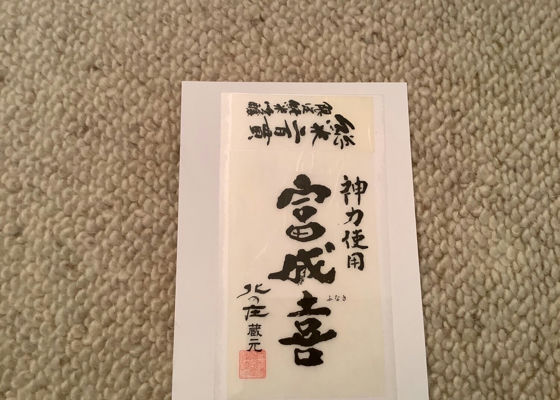 総米二百貫
神力使用
富成喜
ふなき
北の庄蔵元